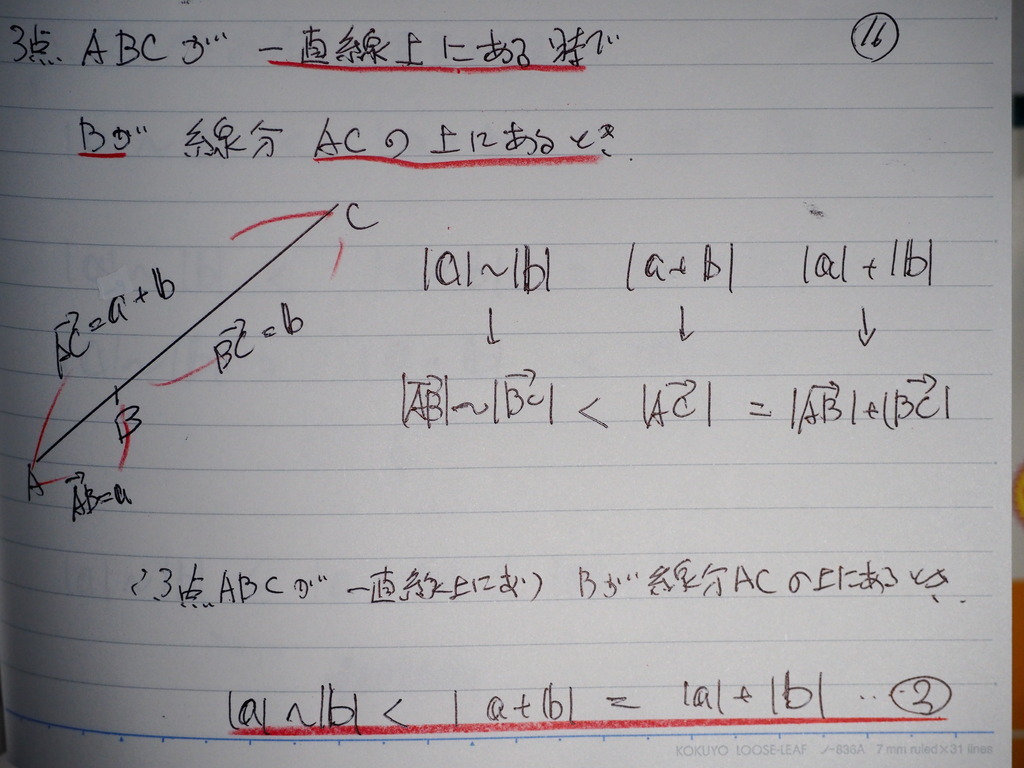 3点 ABCが 一直線上にある時で
⑯
Bが 線分 ACの上にあるとき.
C
|a|~|b| |a+b| |a|+|b|
↓ ↓ ↓
AC→=a+b
BC→=b
|AB→|~|BC→| < |AC→| = |AB→|+|BC→|
B
A
AB→=a
∴3点ABCが 一直線上にあり Bが線分ACの上にあるとき.
|a|~|b| < |a+b| = |a|+|b| ‥②
KOKUYO LOOSE-LEAF ノ-836A 7mm ruled×31 lines